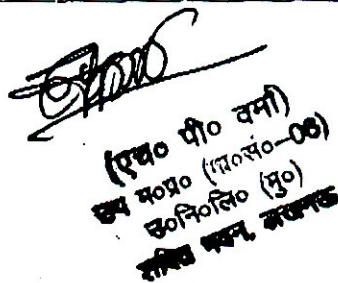 (एच० पी० वर्मा)
उप म०प्र० (मा०सं०-06)
उ०नि०लि० (मु०)
शक्ति भवन, लखनऊ